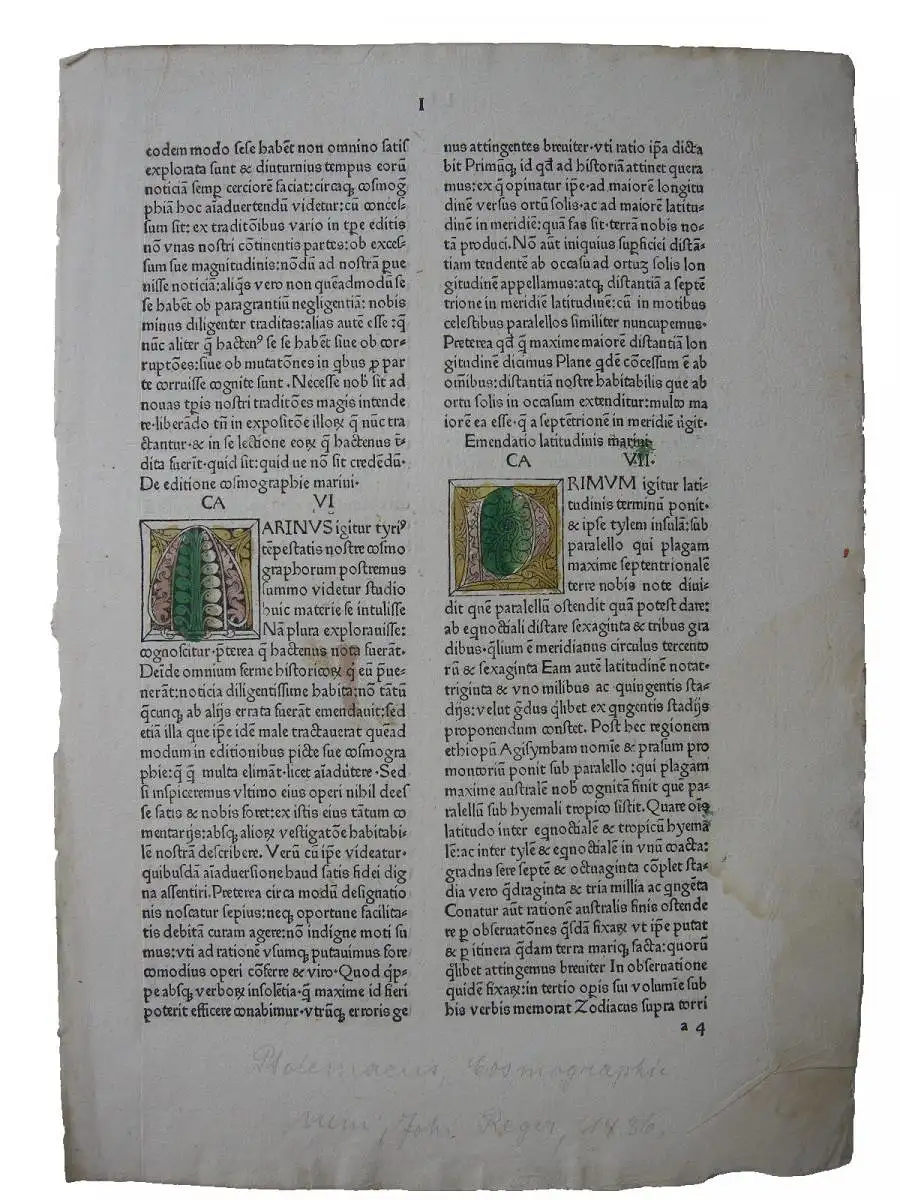 I
eodem modo sese habēt non omnino satis
explorata sunt & diuturnius tempus eorū
noticiā semꝑ cerciorē faciat:circaqꝫ cosmog̃
phiā hoc aīaduertendū videtur:cū conces-
sum sit: ex traditōibus vario in tꝑe editis
nō vnas nostri cōtinentis partes: ob exces-
sum sue magnitudinis:nōdū ad nostrā ꝑue
nisse noticiā:aliqs vero non quēadmodū se
se habēt ob paragrantiū negligentiā: nobis
minus diligenter traditas:alias autē esse :q̄
nūc aliter q̄ hactenꝰ se se habēt siue ob cor-
ruptōes:siue ob mutatōnes in qbus ꝓ par
te corruisse cognite sunt . Necesse nob̄ sit ad
nouas tꝑis nostri traditōes magis intende
re·liberādo tn̄ in expositōe illoꝝ q̄ nūc tra
ctantur·& in se lectione eoꝝ q̄ hactenus t̄-
dita fuerīt·quid sit:quid ue nō sit credēdū·
De editione cosmographie marini·
CA VI
MARINVS igitur tyriꝰ
tēpestatis nostre cosmo
graphorum postremus
summo videtur studio
huic materie se intulisse
Nā plura explorauisse:
cognoscitur·p̄terea q̄ hactenus nota fuerāt·
Deīde omnium ferme historicoꝝ q̄ eū p̄ue-
nerāt:noticia diligentissime habita:nō tātū
q̄cunqꝫ ab alijs errata fuerāt emendauit:sed
etiā illa que ip̄e idē male tractauerat quēad
modum in editionibus picte sue cosmogra
phie:q̄ q̄ multa elimāt·licet aīadūtere·Sed
si inspiceremus vltimo eius operi nihil dees
se satis & nobis foret:ex istis eius tātum co
mentarijs:absqꝫ alioꝝ vestigatōe habitabi-
lē nostrā describere. Verū cū ip̄e videatur·
quibusdā aīaduersione haud satis fidei dig
na assentiri.Preterea circa modū designatio
nis noscatur sepius:neqꝫ oportune facilita-
tis debitā curam agere:nō indigne moti su
mus:vti ad rationē vsumqꝫ putauimus fore
comodius operi cōferre & viro·Quod q̄p-
pe absqꝫ verboꝝ insolētia·q̄ maxime id fieri
poterit efficere conabimur·vtrūqꝫ erroris ge
nus attingentes breuiter·vti ratio ip̄a dicta
bit Primūqꝫ id qd̄ ad historiā attinet quera
mus:ex q̄ opinatur ip̄e·ad maiorē longitu
dinē versus ortū solis·ac ad maiorē latitu-
dinē in meridiē:quā fas sit·terrā nobis no-
tā produci. Nō aūt iniquius suꝑficiei distā-
tiam tendentē ab occasu ad ortuꝫ solis lon
gitudinē appellamus:atqꝫ distantiā a septē
trione in meridiē latitudinē:cū in motibus
celestibus paralellos similiter nuncupemus·
Preterea qd̄ q̄ maxime maiorē distantiā lon
gitudinē dicimus Plane qdē cōcessum ē ab
om̄ibus:distantiā nostre habitabilis que ab
ortu solis in occasum extenditur:multo ma
iorē ea esse·q̄ a septētrionē in meridiē ūgit·
Emendatio latitudinis marini·
CA VII·
PRIMVM igitur lati-
tudinis terminū ponit·
& ipse tylem insulā:sub
paralello qui plagam
maxime septentrionalē
terre nobis note diui-
dit quē paralellū ostendit quā potest dare:
ab eqnoctiali distare sexaginta & tribus gra
dibus·q̄lium ē meridianus circulus tercento
rū & sexaginta Eam autē latitudinē notat·
triginta & vno milibus ac quingentis sta-
dijs:velut g̃dus q̄libet ex qngentis stadijs
proponendum constet. Post hec regionem
ethiopū Agisymbam nomīe & prasum pro
montoriū ponit sub paralello :qui plagam
maxime australē nob̄ cognitā finit que pa-
ralellū sub hyemali tropico sistit. Quare oīs
latitudo inter eqnoctialē & tropicū hyemā
lē:ac inter tylē & eqnoctialē in vnū coacta:
gradus fere septē & octuaginta cōplet sta-
dia vero q̄draginta & tria millia ac qngēta
Conatur aūt rationē australis finis ostende
re ꝑ obseruatōnes q̄sdā fixaꝝ vt ip̄e putat
& ꝑ itinera q̄dam terra mariqꝫ facta:quorū
q̄libet attingemus breuiter In obseruatione
quidē fixaꝝ:in tertio opis sui volumīe sub
his verbis memorat Zodiacus supra torri
a 4
Ptolemaeus, Cosmographie
Joh. Reger, 1486.